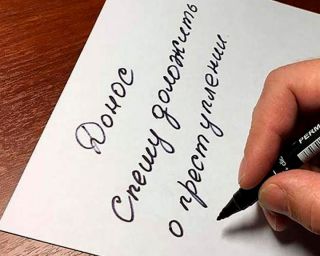 Донос
Спешу доложить
о преступлении.
PERM